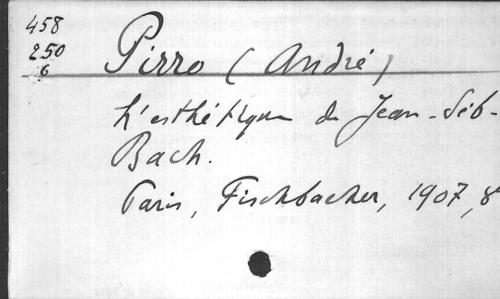 458
250
6
Pirro (André)
L'esthétique de Jean-Séb-
Bach.
Paris, Fischbacher, 1907, 8°